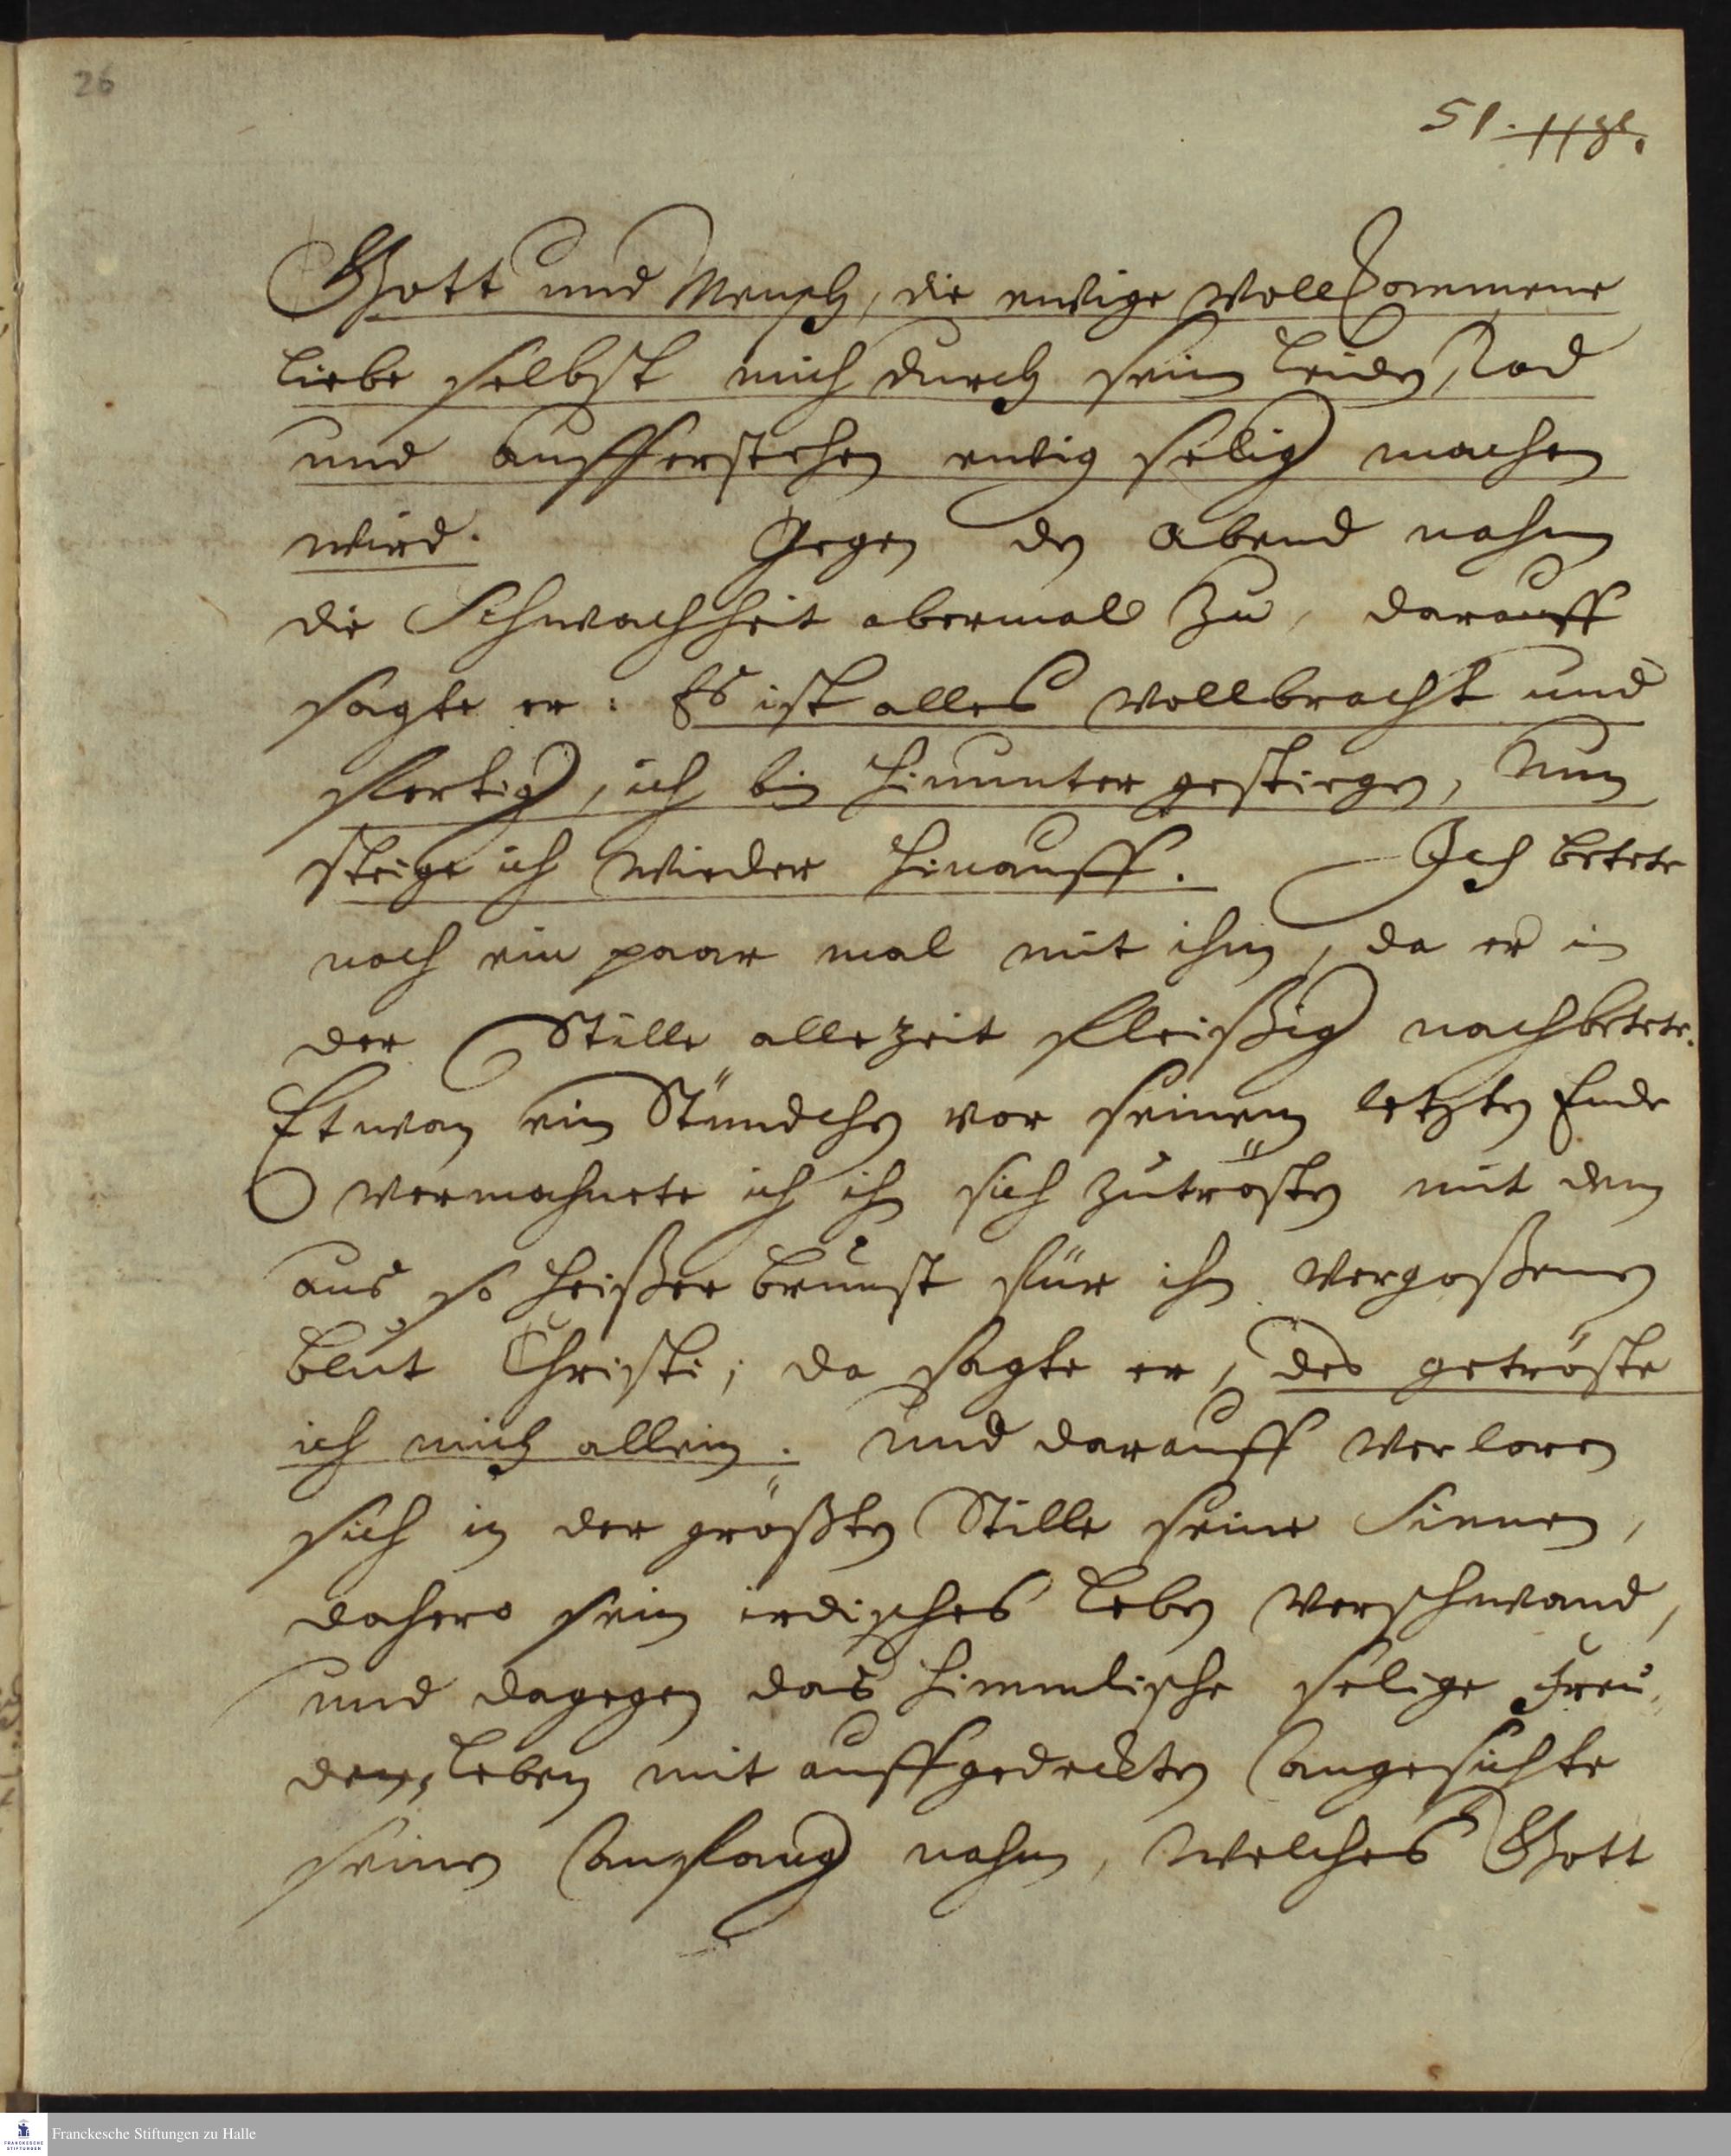 26
51. 118.
Gott und Mensch, die ewige vollkommene
liebe selbst mich durch sein leiden, Tod
und aufferstehen ewig selig machen
wird. Gegen den Abend nahm
die Schwachheit abermal zu, darauff
sagte er: Es ist alles vollbracht und
fertig, ich bin hinunter gestiegen, Nun
steige ich wieder hinauff. Ich betete
noch ein paar mal mit ihm, da er in
der Stille allezeit fleißig nachbetete.
Etwan ein Stündchen vor seinem letzten Ende
vermahnete ich ihn sich zutrösten mit dem
aus so heißer brunst für ihn vergoßenen
blut Christi; da sagte er, des getröste
ich mich allein. und darauff verloren
sich in der größten Stille seine Sinnen,
dahero sein irdisches leben verschwand,
und dagegen das himmlische selige Freu-
den-leben mit auffgedeckten Angesichte
seinen Anfang nahm, welches Gott
FRANCKESCHE STIFTUNGEN
Franckesche Stiftungen zu Halle